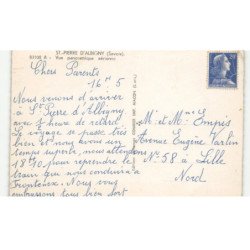 ST-PIERRE D'ALBIGNY (Savoie)
Vue panoramique aérienne
Chers Parents
16 h 5
Nous venons d'arriver
à St Pierre d'Albigny
avec 1 heure de retard
Le voyage se passe très
bien et nous avons un
temps superbe, nous attendons
18 h 10 pour reprendre le
train qui nous conduira à
Nous vous
embrassons tous bien fort
M. et Mme Empis
Avenue Eugène Varlin
N° 58 à Lille
Nord